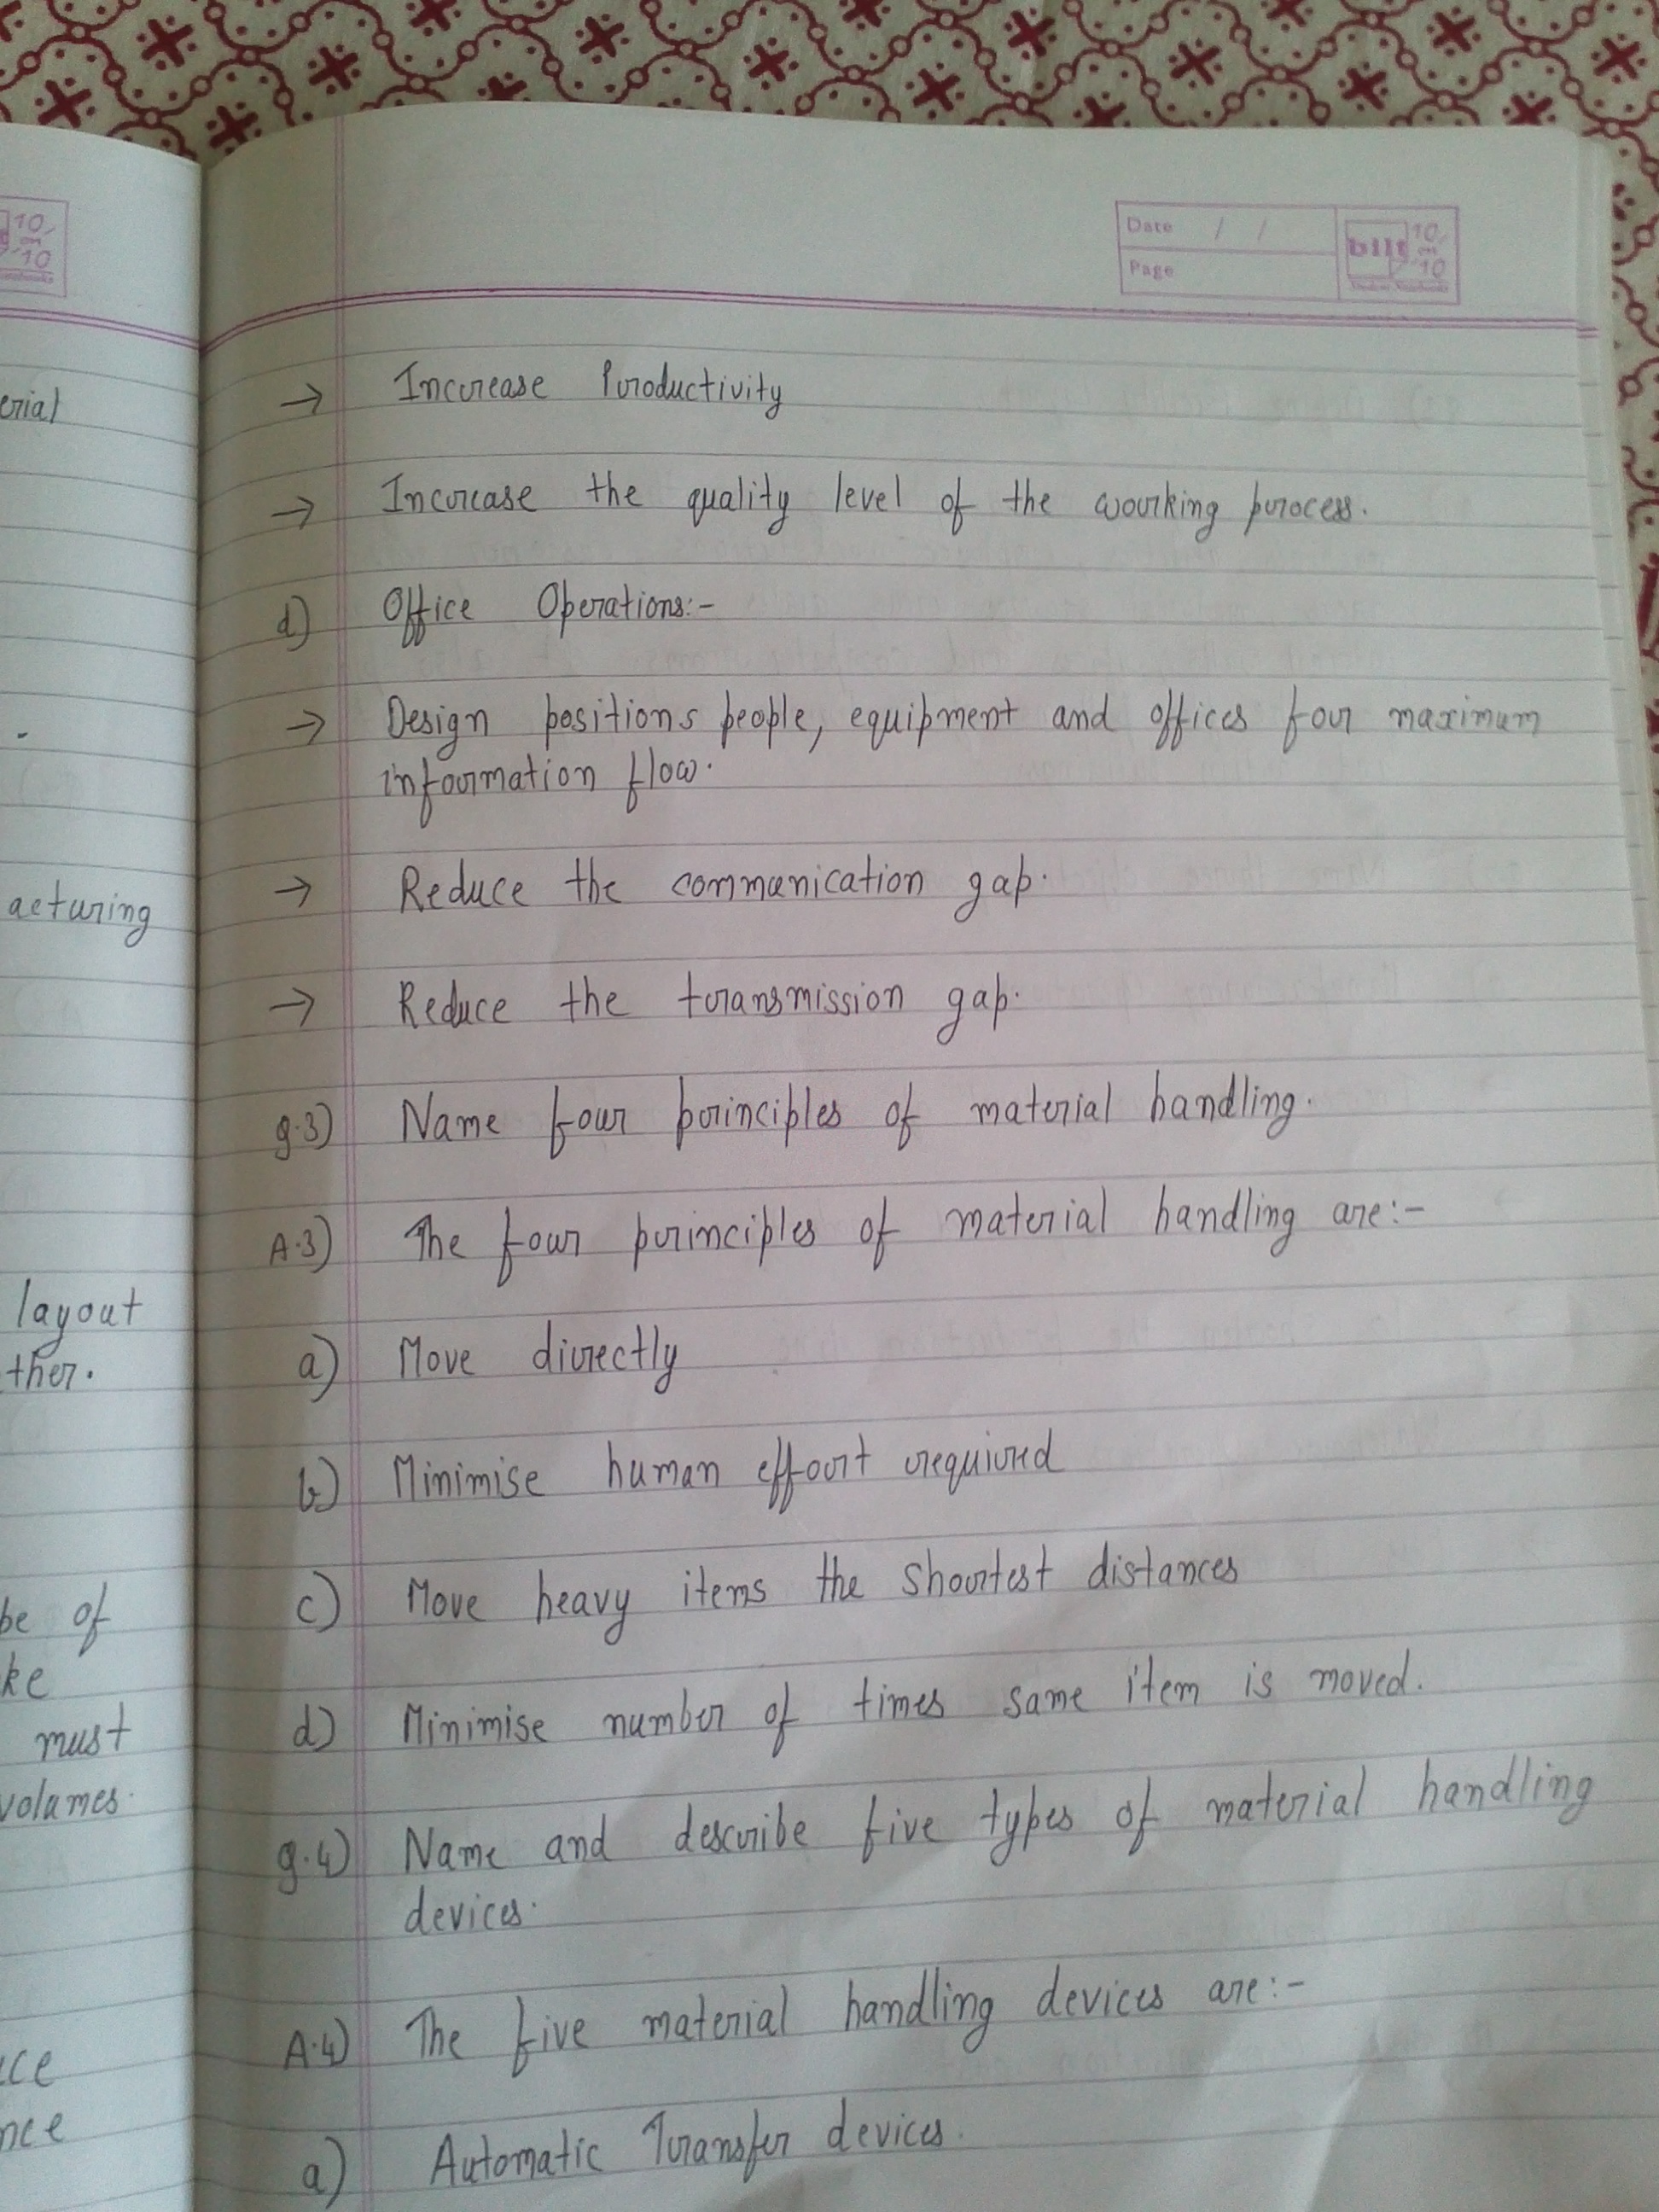 erial
acturing
layout
ther.
be of
ke
must
volumes.
ce
nce
10
on
10
Date / /
Page
bilt 10
on
10
→ Increase Productivity
→ Increase the quality level of the working process.
d) Office Operations:-
→ Design positions people, equipment and offices for maximum
information flow.
→ Reduce the communication gap.
→ Reduce the transmission gap.
Q.3) Name four principles of material handling.
A.3) The four principles of material handling are:-
a) Move directly
b) Minimise human effort required
c) Move heavy items the shortest distances
d) Minimise number of times same item is moved.
Q.4) Name and describe five types of material handling
devices.
A.4) The five material handling devices are:-
a) Automatic Transfer devices.